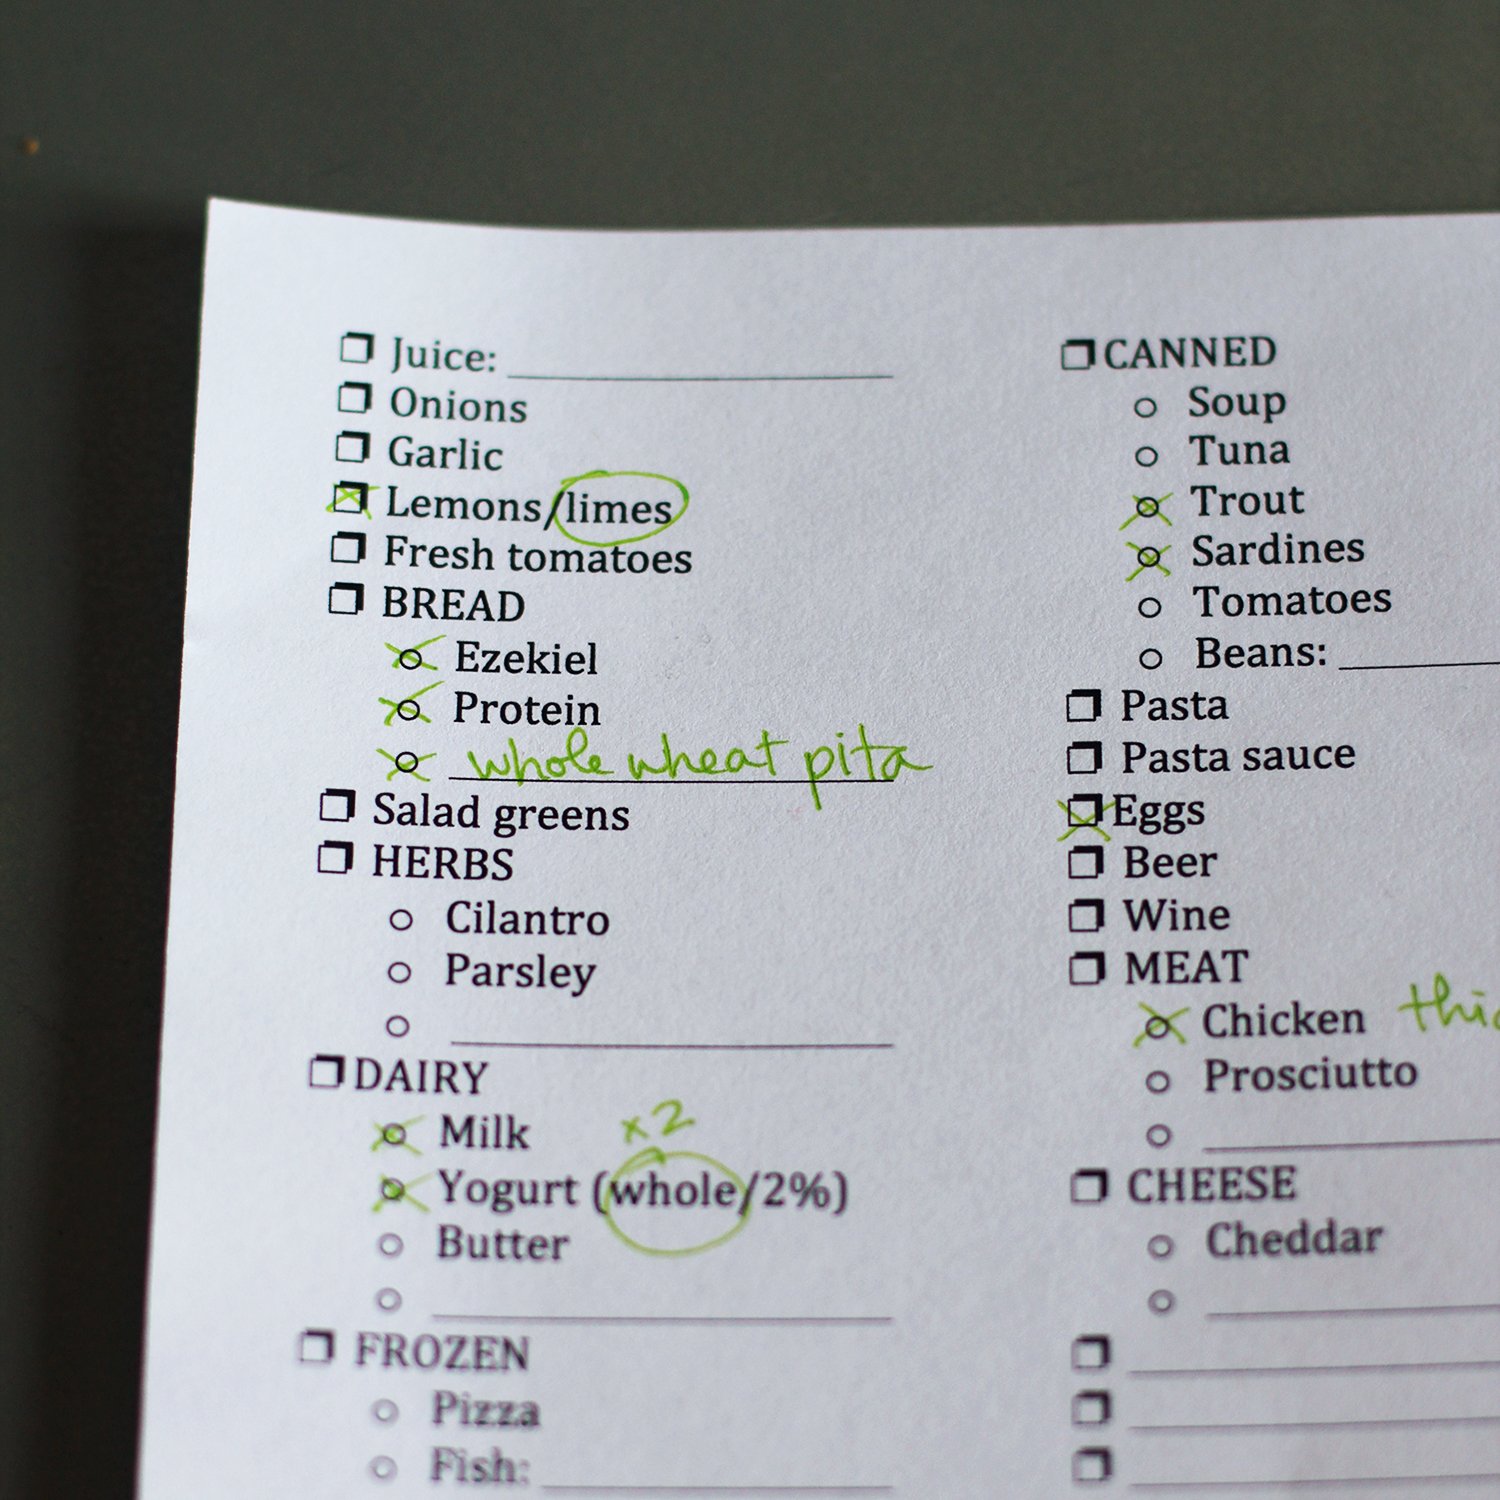 Juice:
Onions
Garlic
Lemons/limes
Fresh tomatoes
BREAD
Ezekiel
Protein
whole wheat pita
Salad greens
HERBS
Cilantro
Parsley
DAIRY
Milk
x2
Yogurt (whole/2%)
Butter
FROZEN
Pizza
Fish:
CANNED
Soup
Tuna
Trout
Sardines
Tomatoes
Beans:
Pasta
Pasta sauce
Eggs
Beer
Wine
MEAT
Chicken
Prosciutto
CHEESE
Cheddar